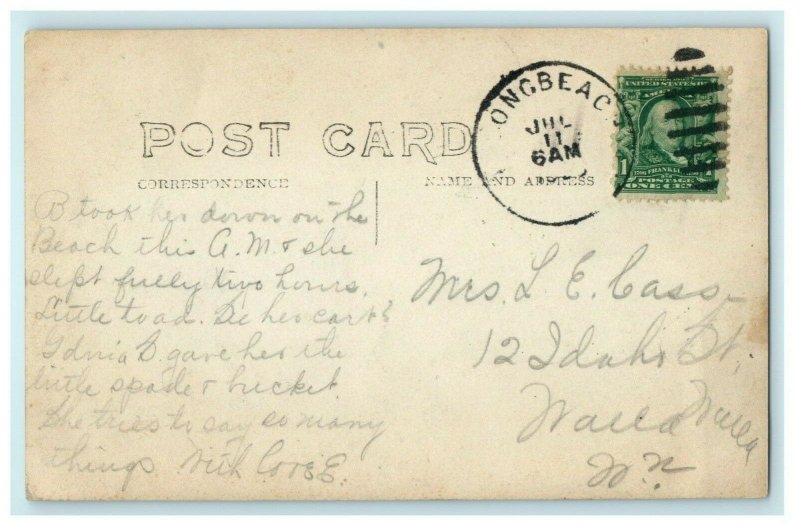 ONGBEAC
JUL
11
6AM
UNITED STATES OF
AMERICA
1
FRANKLIN
POSTAGE
ONE CENT
POST CARD
CORRESPONDENCE
NAME AND ADDRESS
B took her down on the
Beach this A.M. & she
slept fully two hours.
Little toad. her
gave her the
little spade & bucket.
She tries to say so many
things With Love E.
Mrs. L E. Cass
12 Idaho St,
Walla Walla
Wn